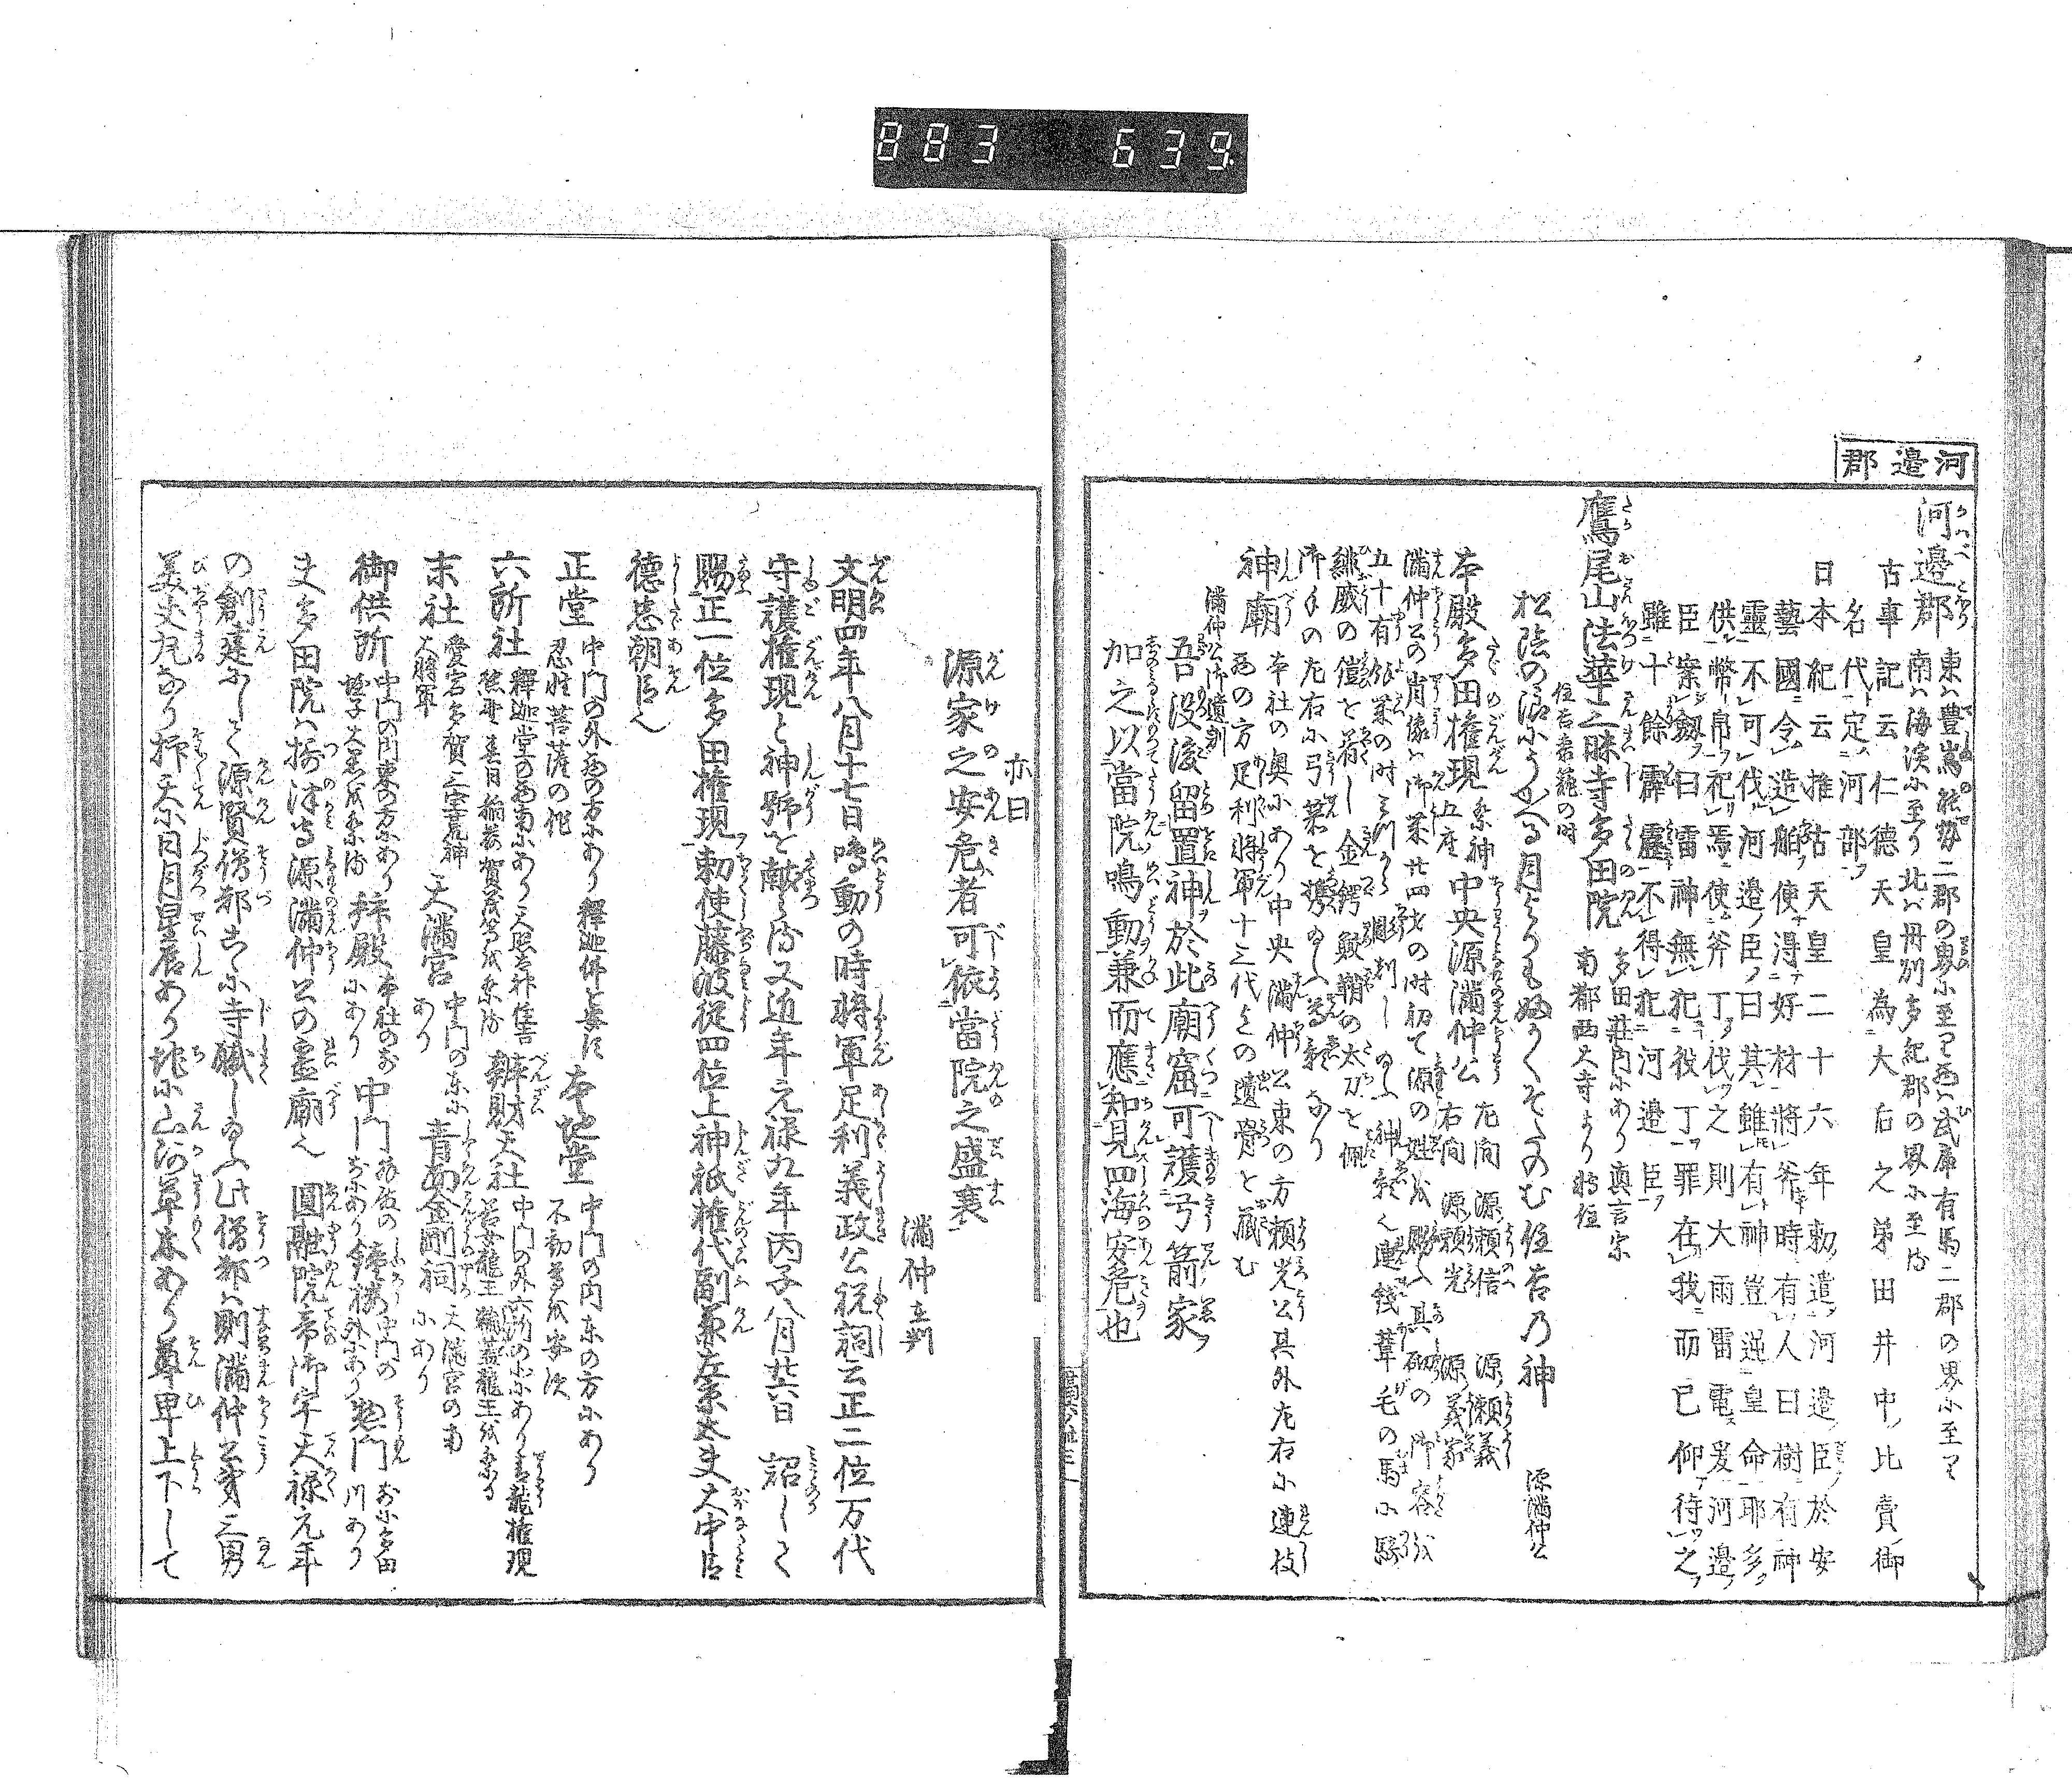 883 639
河邉郡
河邉郡 東は豊嶌能勢二郡の界に至り西は武庫有馬二郡の界に至り
南は海濱に至り北は丹列多紀郡の界に至る
古事記云仁德天皇為大后之弟田井中比賣御
名代定河部
日本紀云推古天皇二十六年勅遣河邉臣於安
藝國令造舶使淂好材將斧時有人曰樹有神
靈不可伐河邉臣曰其雖有神豈逆皇命耶多
供幣帛祀焉使斧丁伐之則大雨雷電爰河邉
臣案劔曰雷神無犯役丁罪在我而已仰待之
雖十餘霹靂不得犯河邉臣
鷹尾山法華三昧寺多田院 多田荘内にあり真言宗
南都西大寺より转住
住吉参籠の時
松陰の浪にうへる月よりもふかくそたのむ住吉乃神 源滿仲公
本殿多田権現 祭神五座 中央源滿仲公 左間 源頼信 源頼義
右間 源頼光 源義家
滿仲公の肖像は御業廿四才の時初て源の姓を賜ふ其砌の御容を
五十有餘業の時みつから彫刻し給ふ神影也連錢葦毛の馬に騎
緋威の鎧を着し金鍔鮫鞘の太刀を佩
御手の左右に弓箭を携給ふ尊影なり
神廟 本社の奥にあり中央滿仲公東の方頼光公其外左右に連枝
西の方足利將軍十三代迄の遺骨を蔵む
滿仲公御遺訓
吾没後留置神於此廟窟可護弓箭家
加之以當院鳴動兼而應知見四海安危也
亦曰
源家之安危者可依當院之盛衰
滿仲在判
文明四年八月十七日鳴動の時將軍足利義政公祝詞云正二位万代
守護権現と神號を献らる又近年元禄九年丙子八月廿六日 詔して
賜正一位多田権現勅使藤波從四位上神祇権代副兼左京太夫大中臣
德忠朝臣也
正堂 中門の外西の方にあり釋迦佛を安に
忍性菩薩の作 本地堂 中門の内东の方にあり
不動尊を安次
六所社 釋迦堂の西南にあり天照太神住吉
熊野春日稲荷賀茂等を祭る 辨財天社 中門の外六所の北にあり青龍権現
善女龍王瀧蔵龍王を祭る
末社 愛宕多賀三宝荒神
大將軍 天滿宮 中門の东に
あり 青面金剛祠 天滿宮の南
にあり
御供所 中門の内東の方にあり
惣子大黒を祭る 拜殿 本社のお
にあり 中門 拜殿の
お小あり 鐘樓 中門の
外にあり 惣門 お小多田
川あり
夫多田院は摂津守源滿仲公の霊廟也 圓融院帝御宇天禄元年
の創建にして源賢僧都こゝに寺職し給ふ此僧都は則滿仲公第三男
美丈丸なり抑天に日月星辰あり地に山河草木あり尊卑上下して